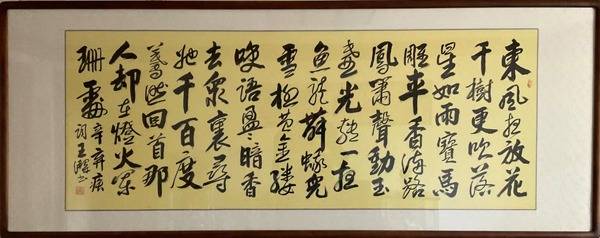 東風夜放花
千樹更吹落
星如雨寶馬
雕車香滿路
鳳簫聲動玉
壺光轉一夜
魚龍舞蛾兒
雪柳黃金縷
笑語盈盈暗香
去衆裏尋
他千百度
驀然回首那
人却在燈火闌
珊處 辛弃疾
詞王書